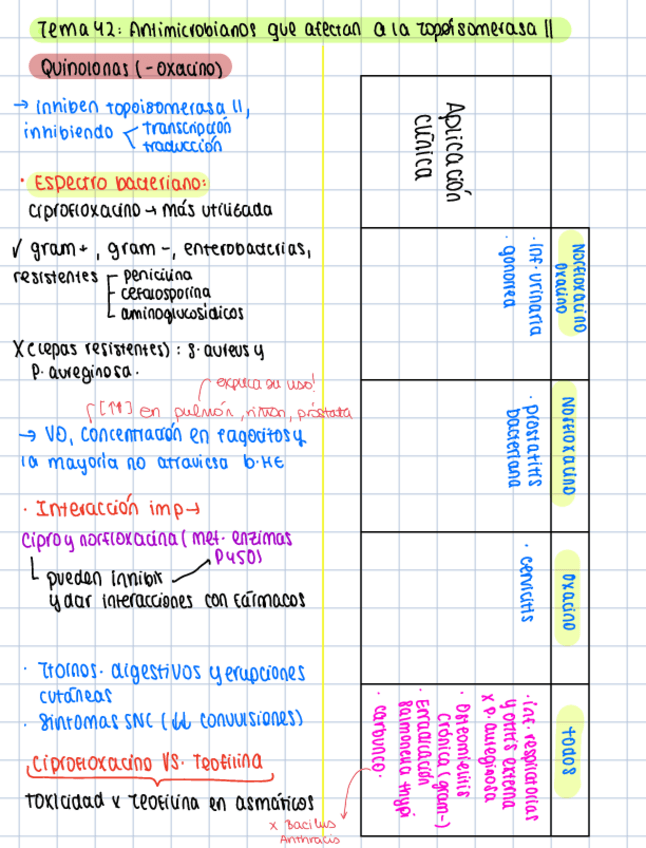 Tema 42: Antimicrobianos que afectan a la topoisomerasa II
Quinolonas (-oxacino)
→ inhiben topoisomerasa II,
inhibiendo < transcripción
traducción
· Espectro bacteriano:
ciprofloxacino → más utilizada
✓ gram+, gram-, enterobacterias,
resistentes penicilina
cefalosporina
aminoglucosidicos
X (cepas resistentes): S. aureus y
P. aureginosa.
explica su uso!
[↑↑] en pulmón, riñon, próstata
→ VO, concentración en fagocitos y
la mayoría no atraviesa b.HE
· Interacción imp →
cipro y norfloxacina (met. enzimas
P450)
pueden inhibir
y dar interacciones con fármacos
· Ttornos. digestivos y erupciones
cutáneas
· Síntomas SNC (↓↓ convulsiones)
Ciprofloxacino VS. Teofilina
Toxicidad x Teofilina en asmáticos
Aplicación
clínica
Norfloxacino
oxacino
· Inf. urinaria
· gonorrea
Norfloxacino
· prostatitis
bacteriana
Oxacino
· cervicitis
Todos
· inf. respiratorias
y otitis externa
x P. aureginosa
· Osteomielitis
crónica (gram-)
· Erradicación
Salmonella thypi
· carbunco.
x Bacilus
Anthracis